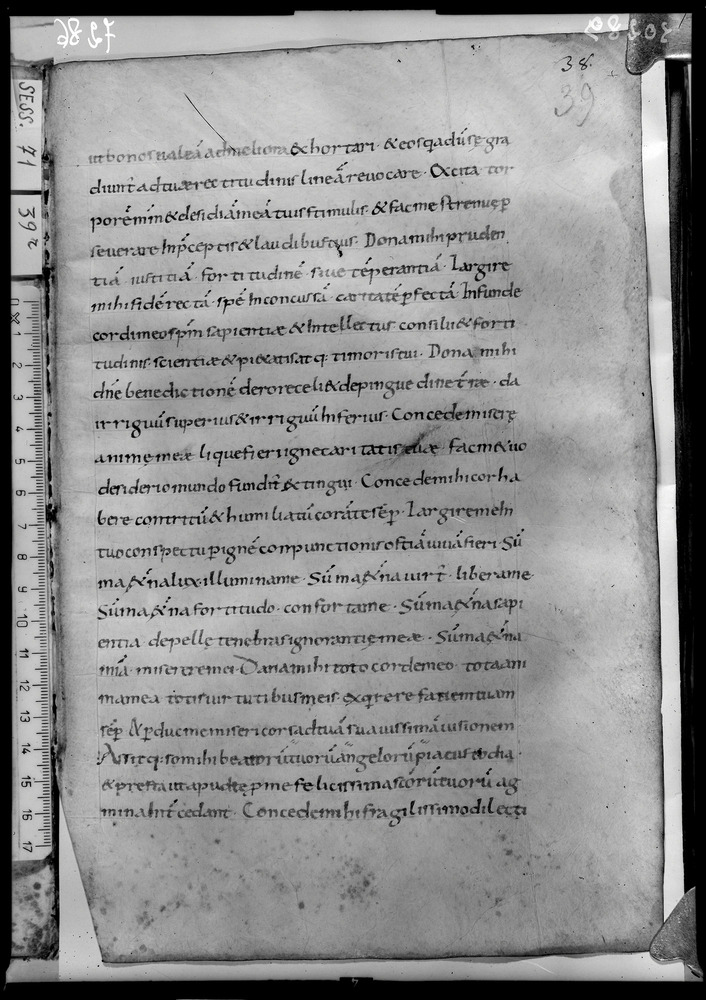 7286
30289
38.
39
SESS. 71
39r
ut bonos ualeā ad meliora & hortari · & eos q̄ adūsę gra
diunt̄ ad tuæ rectitudinis lineā reuocare · Excita tor
porē m̄m & desidiā meā tuis stimulis · & fac me strenuę p̄
seuerare In p̄ceptis & laudibus tuis · Dona mihi pruden
tiā iustitiā fortitudinē siue tēperantiā · Largire
mihi fidē rectā · spē Inconcussā · caritatē p̄fectā · Infunde
cordi meo sp̄m sapientiæ & Intellectus · consilii & forti
tudinis · scientiæ & pi&atis atq· timoris tui · Dona mihi
dn̄e benedictionē de rore celi & de pingue dine t̄ræ · da
irriguū superius & irriguū Inferius · Concede miserę
animę meæ liquefieri igne caritatis tuæ fac me uo
desiderio mundo fundit̄ &tingui · Concede mihi cor ha
bere contritū & humiliatū corā te sēp̄ · Largire me In
tuo conspectu pigñe conpunctionis ostiā uiuā fieri · Sū
ma &̄na lux illumina me · Sūma &̄na uirt̄ · libera me
Sūma &̄na fortitudo · conforta me · Sūma &̄na sapi
entia depelle tenebras ignorantię meæ · Sūma &̄na
mīa · miserere mei · Da mihi toto corde meo · tota ani
ma mea totis uirtutibus meis · exq̄rere faciem tuam
sēp̄ · & p̄duc me misericors ad tuā suauissimā uisionem
Assit q·so mihi beatorū tuorū angelorū pia custodia ·
& presta ut apud te p̄ me felicissima sc̄orū tuorū ag
mina Int̄cedant · Concede mihi fragilissimo dilecti